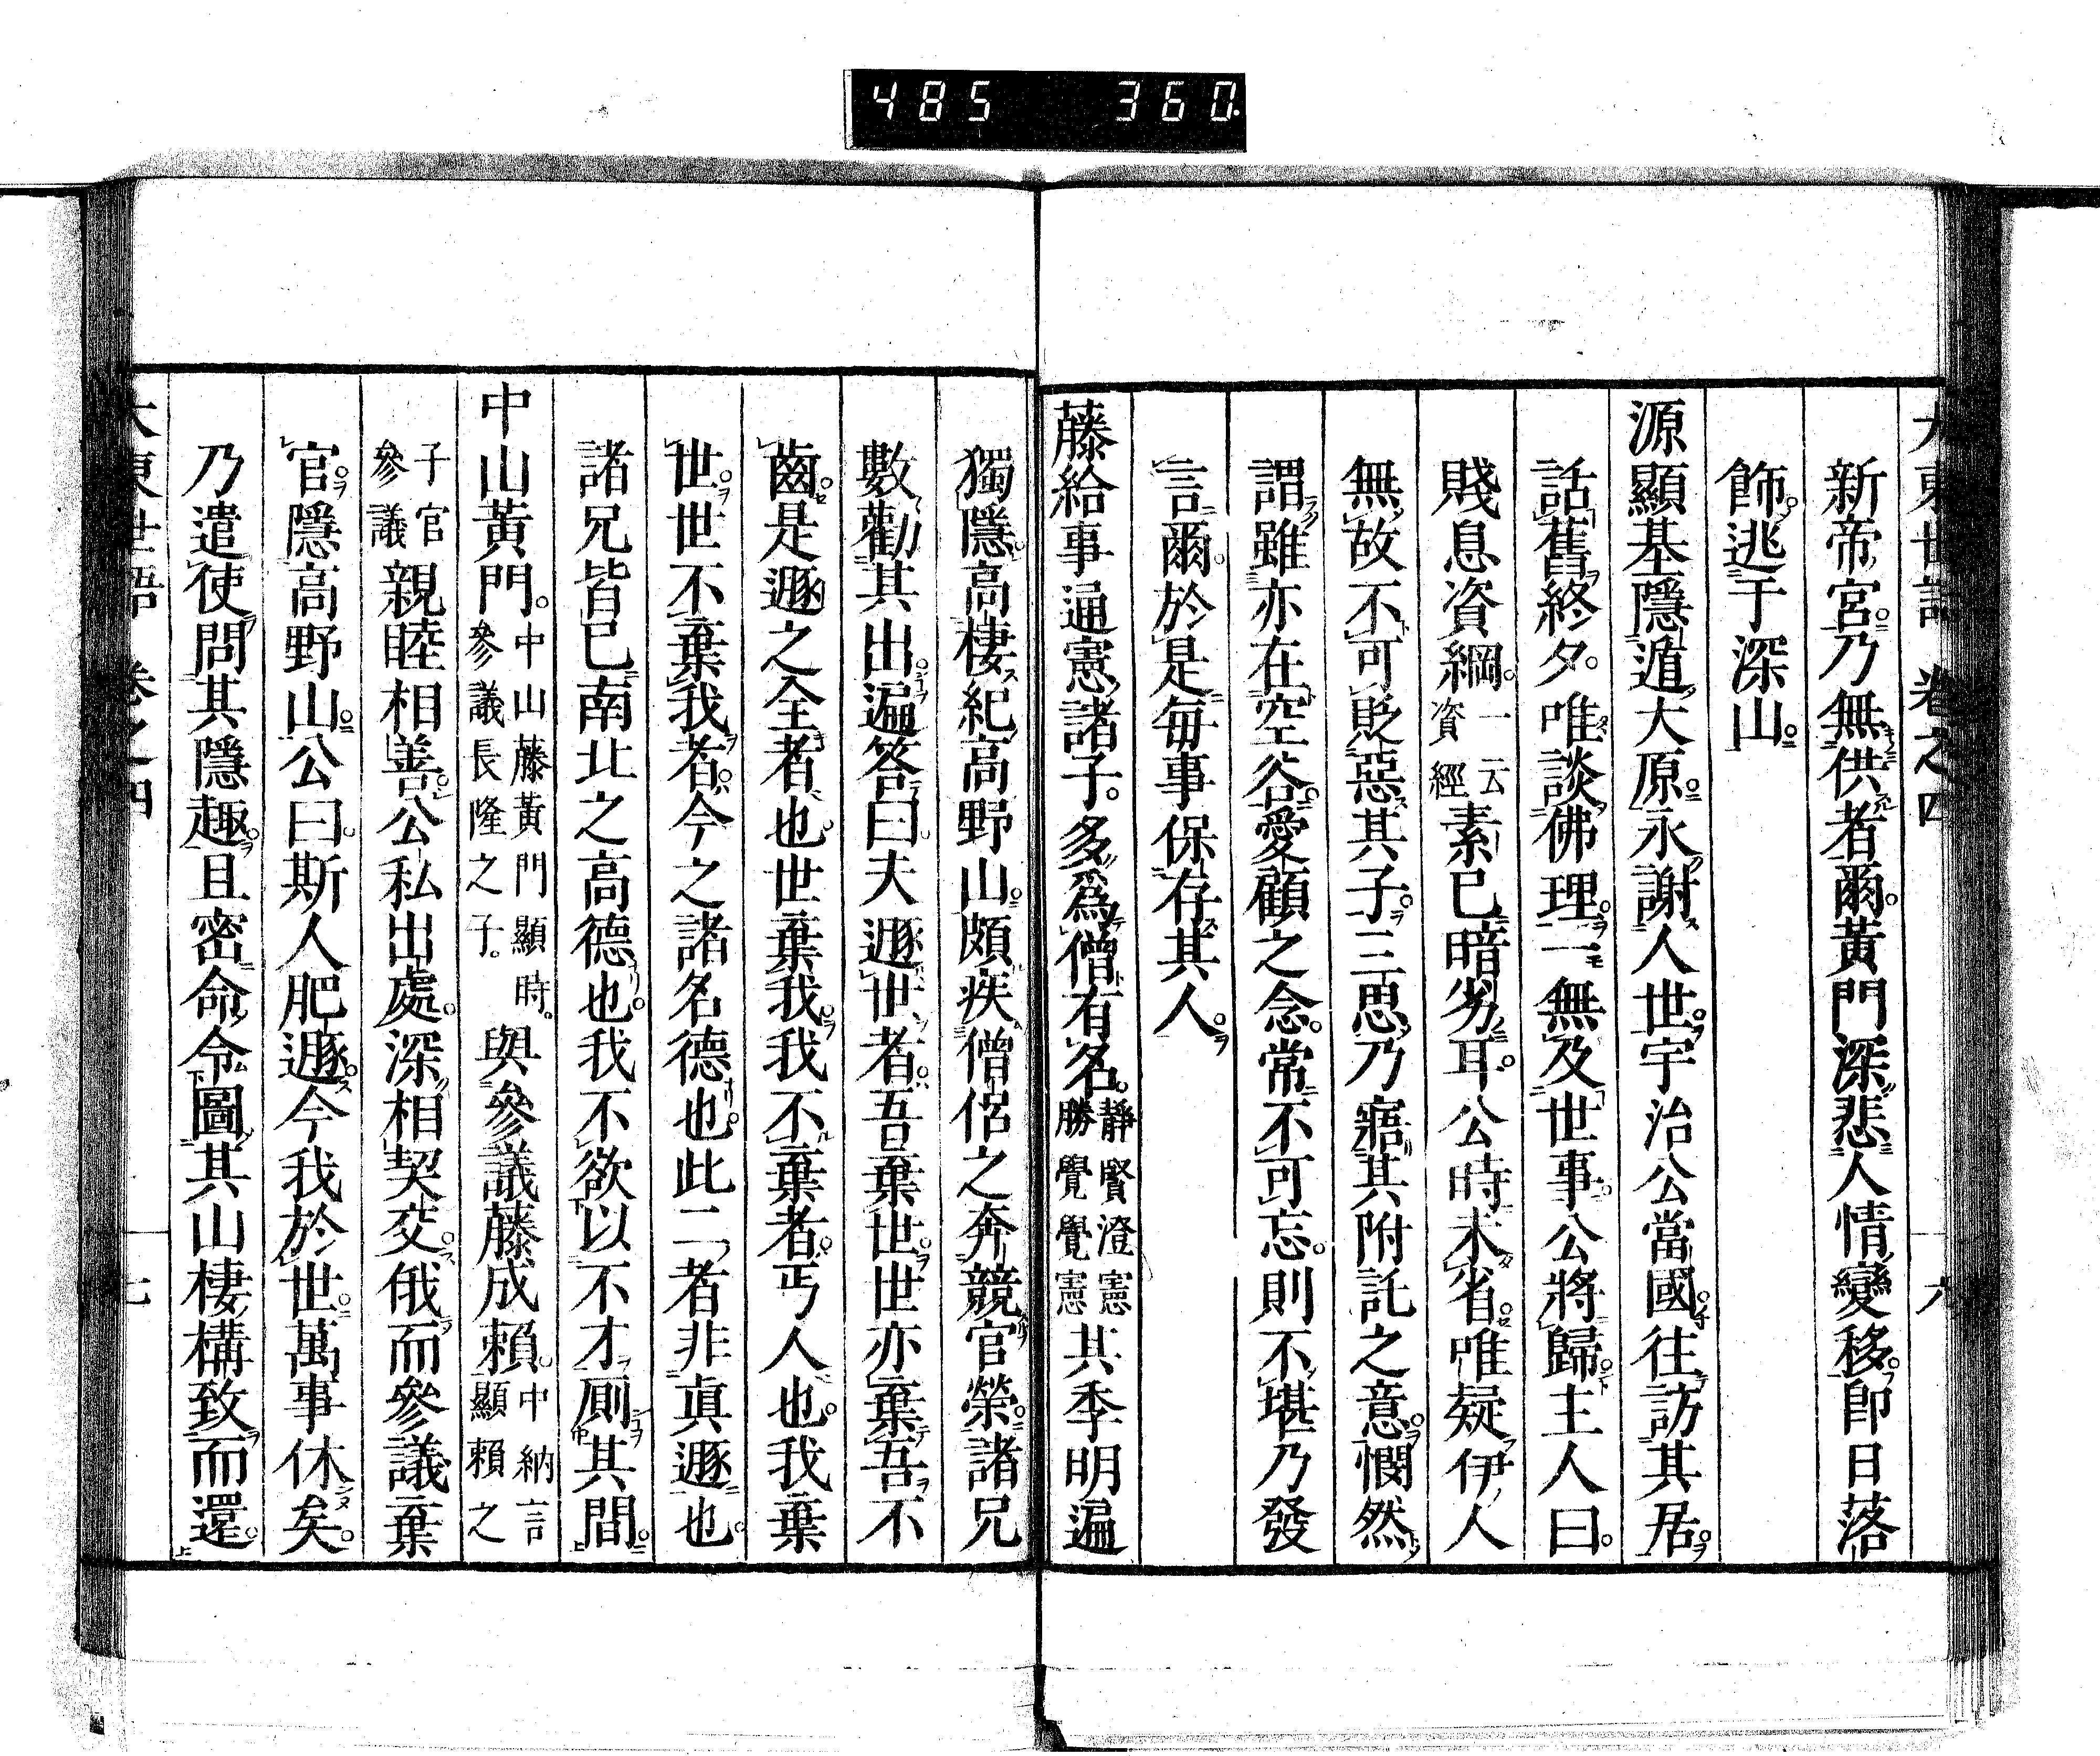 485 360
大東世語 卷之四 六
新帝宮乃無供者爾黃門深悲人情變移卽日落
飾逃于深山
源顯基隱遁大原永謝人世宇治公當國往訪其居
話舊終夕唯談佛理一無及世事公將歸主人曰
賤息資綱一云資經素已暗劣耳公時未省唯疑伊人
無故不可貶惡其子三思乃寤其附託之意憫然
謂雖亦在空谷愛顧之念常不可忘則不堪乃發
言爾於是每事保存其人
藤給事通憲諸子多爲僧有名靜賢澄憲勝覺覺憲其季明遍
獨隱高棲紀高野山頗疾僧侶之奔競官榮諸兄
數勸其出遍答曰夫遯世者吾棄世世亦棄吾不
齒是遯之全者也世棄我我不棄者丐人也我棄
世世不棄我者今之諸名德也此二者非眞遯也
諸兄皆已南北之高德也我不欲以不才厠其間
中山黃門中山藤黃門顯時參議長隆之子與參議藤成賴中納言顯賴之
子官參議親睦相善公私出處深相契交俄而參議棄
官隱高野山公曰斯人肥遯今我於世萬事休矣
乃遣使問其隱趣且密命令圖其山棲構致而還
大東世語 卷之四 七